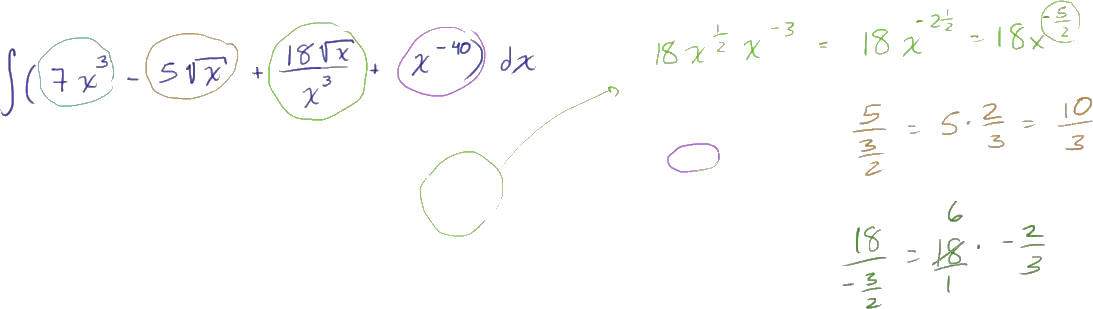 ∫(7x³ - 5√x + 18√x/x³ + x⁻⁴⁰) dx
18x^(1/2) x⁻³ = 18x^(-2 1/2) = 18x^(-5/2)
5/(3/2) = 5 · 2/3 = 10/3
18/(-3/2) = 18/1 · -2/3
6